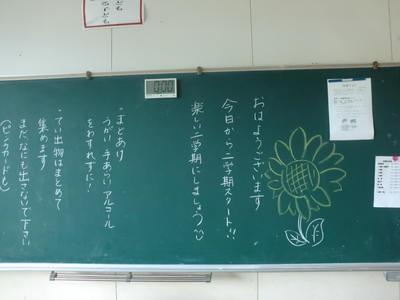 おはようございます
今日から二学期スタート!!
楽しい二学期にしましょう
・まどあけ
うがい 手あらい アルコール
をわすれずに!
・てい出物はまとめて
集めます
まだ、なにも出さないで下さい
(ピンクカードも)
0:00